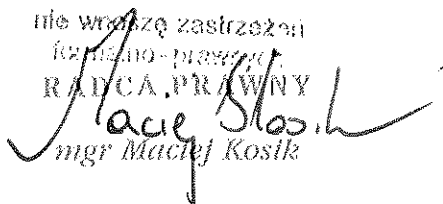 nie wnoszę zastrzeżeń
formalno-prawnych
RADCA PRAWNY
Maciej Kosik
mgr Maciej Kosik